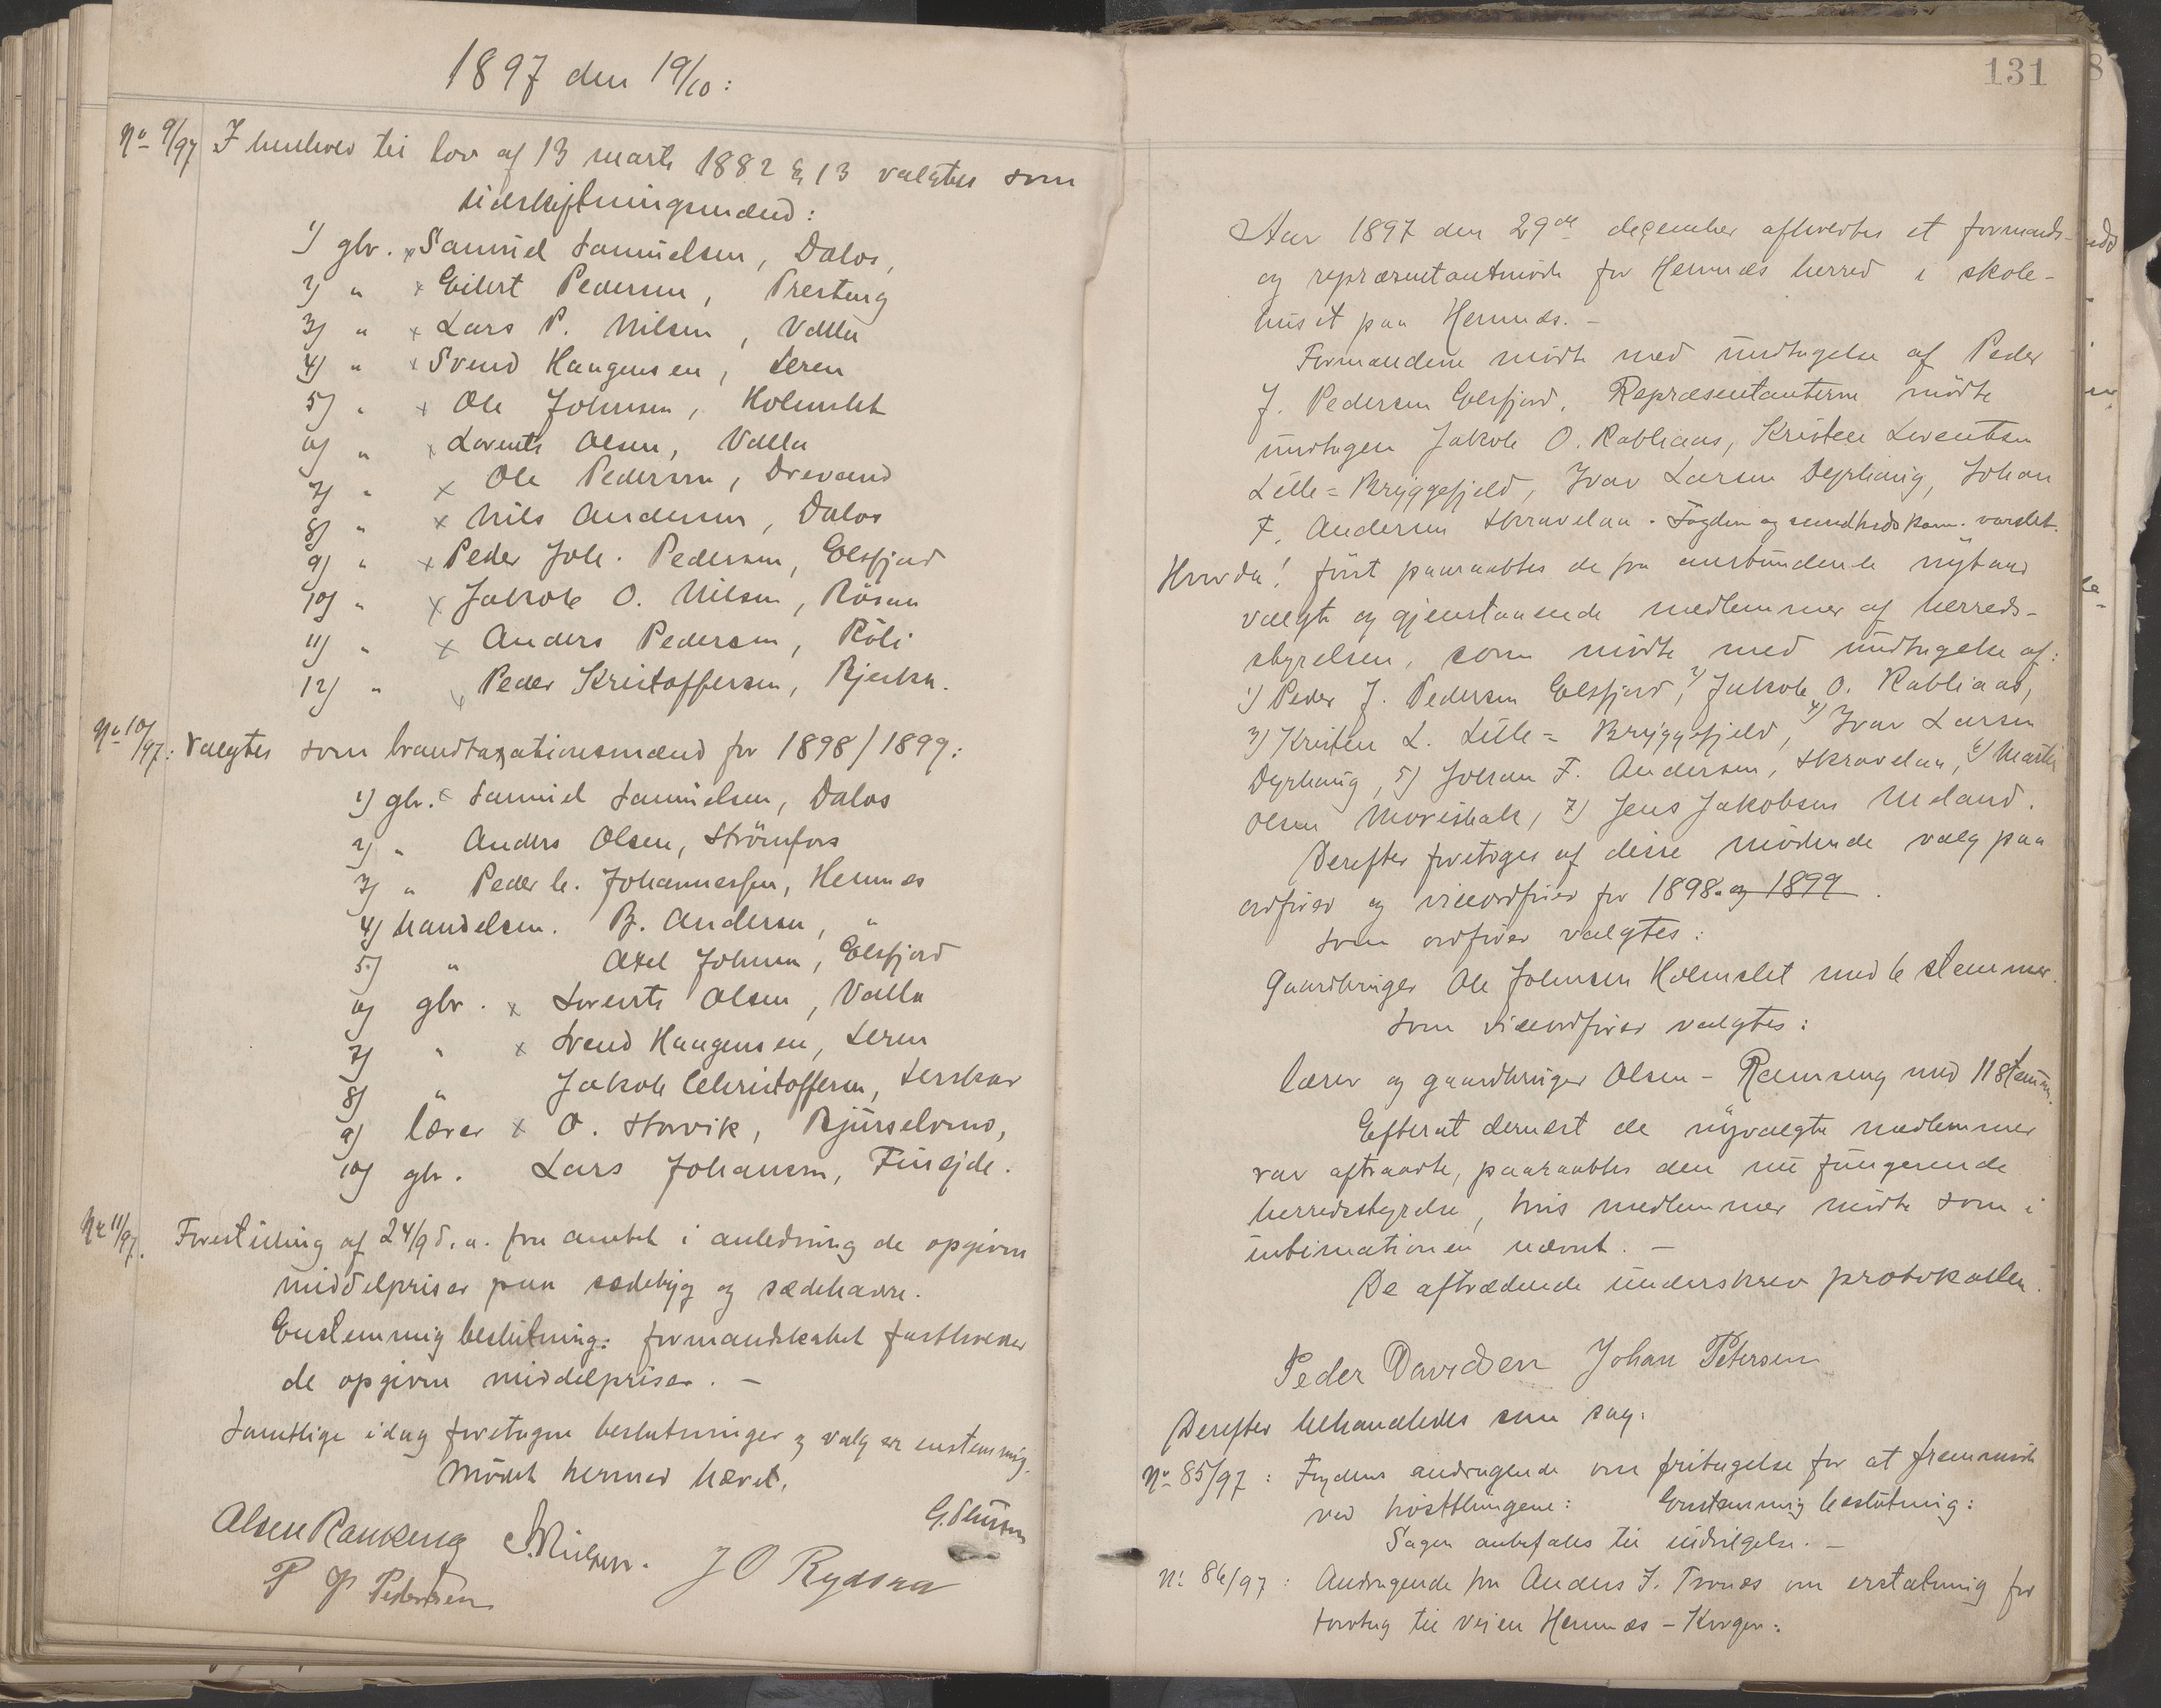 1897 den 19/10:
No 9/97 I henhold til lov af 13 marts 1882 § 13 valgtes som
udskiftningsmænd:
1) gbr. x Samuel Samuelsen, Dalos,
2) " x Eilert Pedersen, Presteng
3) " x Lars P. Nilsen, Valla
4) " x Svend Haugensen, Leren
5) " x Ole Johnsen, Holmslet
6) " x Lorents Olsen, Valla
7) " x Ole Pedersen, Drevand
8) " x Nils Andersen, Dalos
9) " x Peder Joh. Pedersen, Elsfjord
10) " x Jakob O. Nilsen, Røsaa
11) " x Anders Pedersen, Røli
12) " x Peder Kristoffersen, Bjerka.
No 10/97: Valgtes som brandtaxationsmænd for 1898/1899:
1) gbr. x Samuel Samuelsen, Dalos
2) " Anders Olsen, Strømfors
3) " Peder C. Johannessen, Hemnes
4) handelsm. B. Andersen, "
5) " Axel Johnsen, Elsfjord
6) gbr. x Lorents Olsen, Valla
7) " x Svend Haugensen, Leren
8) " Jakob Christoffersen, Lerskar
9) lærer x O. Storvik, Bjurselvmo,
10) gbr. Lars Johansen, Fineide.
No 11/97. Forestilling af 24/9 d. a. fra amtet i anledning de opgivne
middelpriser paa sædebyg og sædehavre.
Enstemmig beslutning: formandskabet fastholder
de opgivne middelpriser. —
Samtlige idag foretagne beslutninger og valg er enstemmig.
Mødet hermed hævet.
Olsen Ranseng S. Nilsen. G. Steensen
P P Pedersen J O Rydsaa
131
Aar 1897 den 29de december afholdtes et formands-
og repræsentantmøde for Hemnes herred i skole-
huset paa Hemnes. —
Formændene mødte med undtagelse af Peder
J. Pedersen Elsfjord. Repræsentanterne mødte
undtagen Jakob O. Rabliaas, Kristen Lorentsen
Lille-Bryggefjeld, Ivar Larsen Dyrhaug, Johan
F. Andersen Skravelaa. Fogden og sundhedskom. varslet.
Hvorda! først paaraabtes de fra anstundende nytaar
valgte og gjenstaaende medlemmer af herreds-
styrelsen, som mødte med undtagelse af:
1) Peder J. Pedersen Elsfjord, 2) Jakob O. Rabliaas,
3) Kristen L. Lille-Bryggefjeld, 4) Ivar Larsen
Dyrhaug, 5) Johan F. Andersen, Skravelaa, 6) Martin
Olsen Movisbak, 7) Jens Jakobsen Uleland.
Derefter foretoges af disse mødende valg paa
ordfører og viceordfører for 1898 og 1899.
Som ordfører valgtes:
Gaardbruger Ole Johnsen Holmslet med 6 stemmer.
Som viceordfører valgtes:
lærer og gaardbruger Olsen-Ramseng med 11 stemm.
Efterat dernæst de nyvalgte medlemmer
var aftraadte, paaraabtes den nu fungerende
herredsstyrelse, hvis medlemmer mødte som i
intimationen nævnt. —
De aftrædende underskrev protokollen.
Peder Davidsen Johan Petersen
Derefter behandledes som sag:
No 85/97: Fogdens andragende om fritagelse for at fremmøde
ved høsttingene: Enstemmig beslutning:
Sagen anbefales til indvilgelse. —
No 86/97: Andragende fra Anders J. Tvonæs om erstatning for
torvtag til veien Hemnes-Korgen.